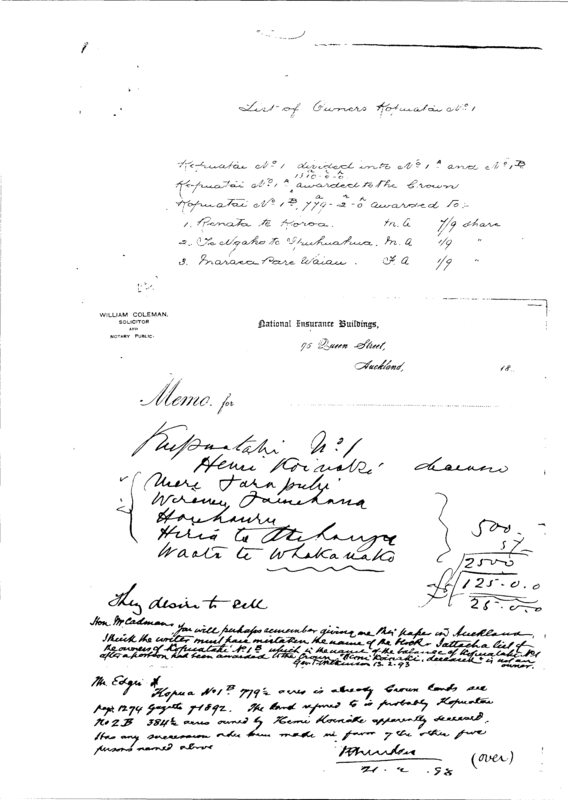 List of Owners Kopuatai No 1
Kopuatai No 1 divided into No 1A and No 1B
1310-0-0
Kopuatai No 1A awarded to the Crown
Kopuatai No 1B 779-2-0 awarded to:-
1. Renata te Koroa. M. A 7/9 share
2. Te Ngako te M. A 1/9 "
3. Maraea Pare Waiau. F. A 1/9 "
WILLIAM COLEMAN,
SOLICITOR
AND
NOTARY PUBLIC.
National Insurance Buildings,
95 Queen Street,
Auckland, 18
Memo. for
No 1
Hemi deceased
Mere Tarapuhi
Hauhauru
Hiria te
Waata te Whakanako
500.
5/-
2500
£125.0.0
25.0.0
They desire to sell
Hon. Mr Cadman You will perhaps remember giving me this paper in Auckland
I think the writer must have mistaken the name of the block. I attach a list of
the owners of Kopuatai No 1B which is the name of the balance of Kopuatai No 1
after a portion had been awarded to the Crown. "Hemi deceased" is not an
owner.
13.2.93
Mr. Edger
Kopua No 1B 779½ acres is already Crown lands see
page 1274 Gazette of 1892. The land refered to is probably Kopuatai
No 2B 384½ acres owned by Hemi apparently deceased.
Has any succession order been made in favor of the other five
persons named above
21.2.93
(over)